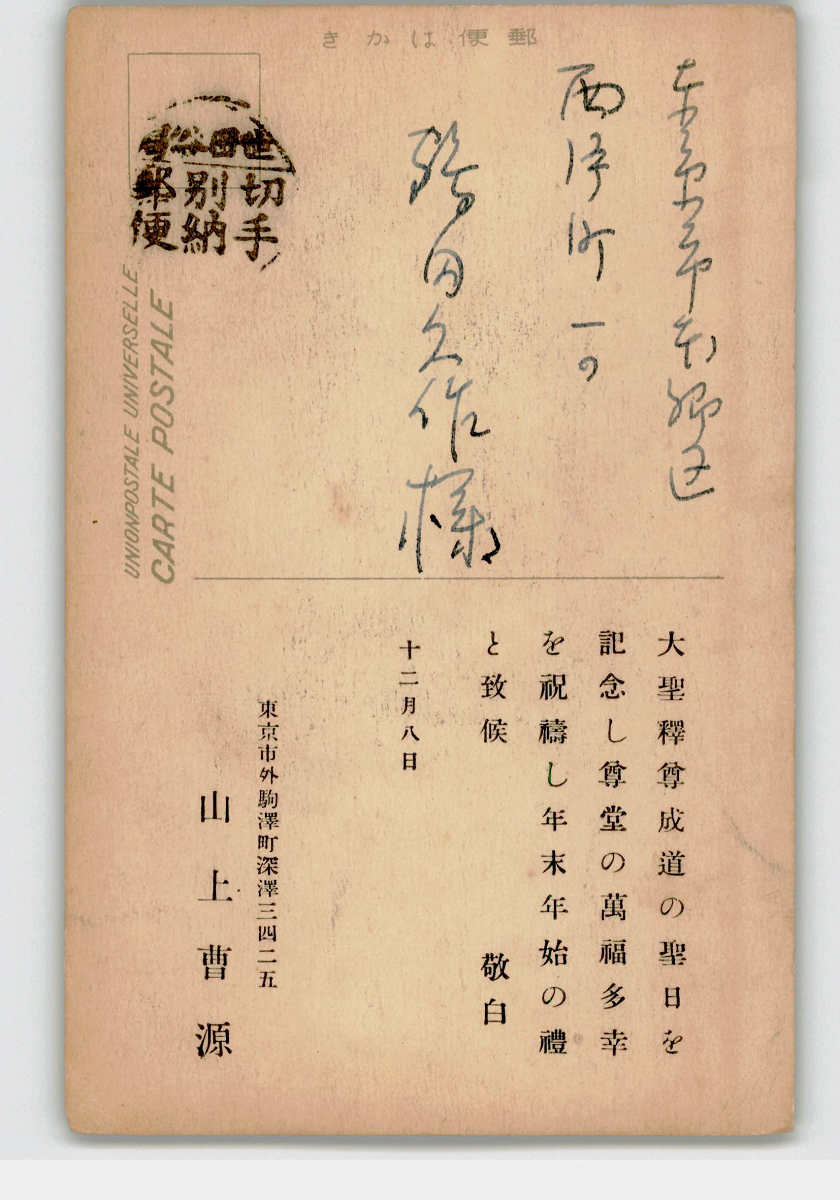 郵便はがき
世田谷
切手
別納
郵便
UNIONPOSTALE UNIVERSELLE
CARTE POSTALE
東京市本郷区
西片町一の
田久作様
大聖釋尊成道の聖日を
記念し尊堂の萬福多幸
を祝禱し年末年始の禮
と致候 敬白
十二月八日
東京市外駒澤町深澤三四二五
山上曹源